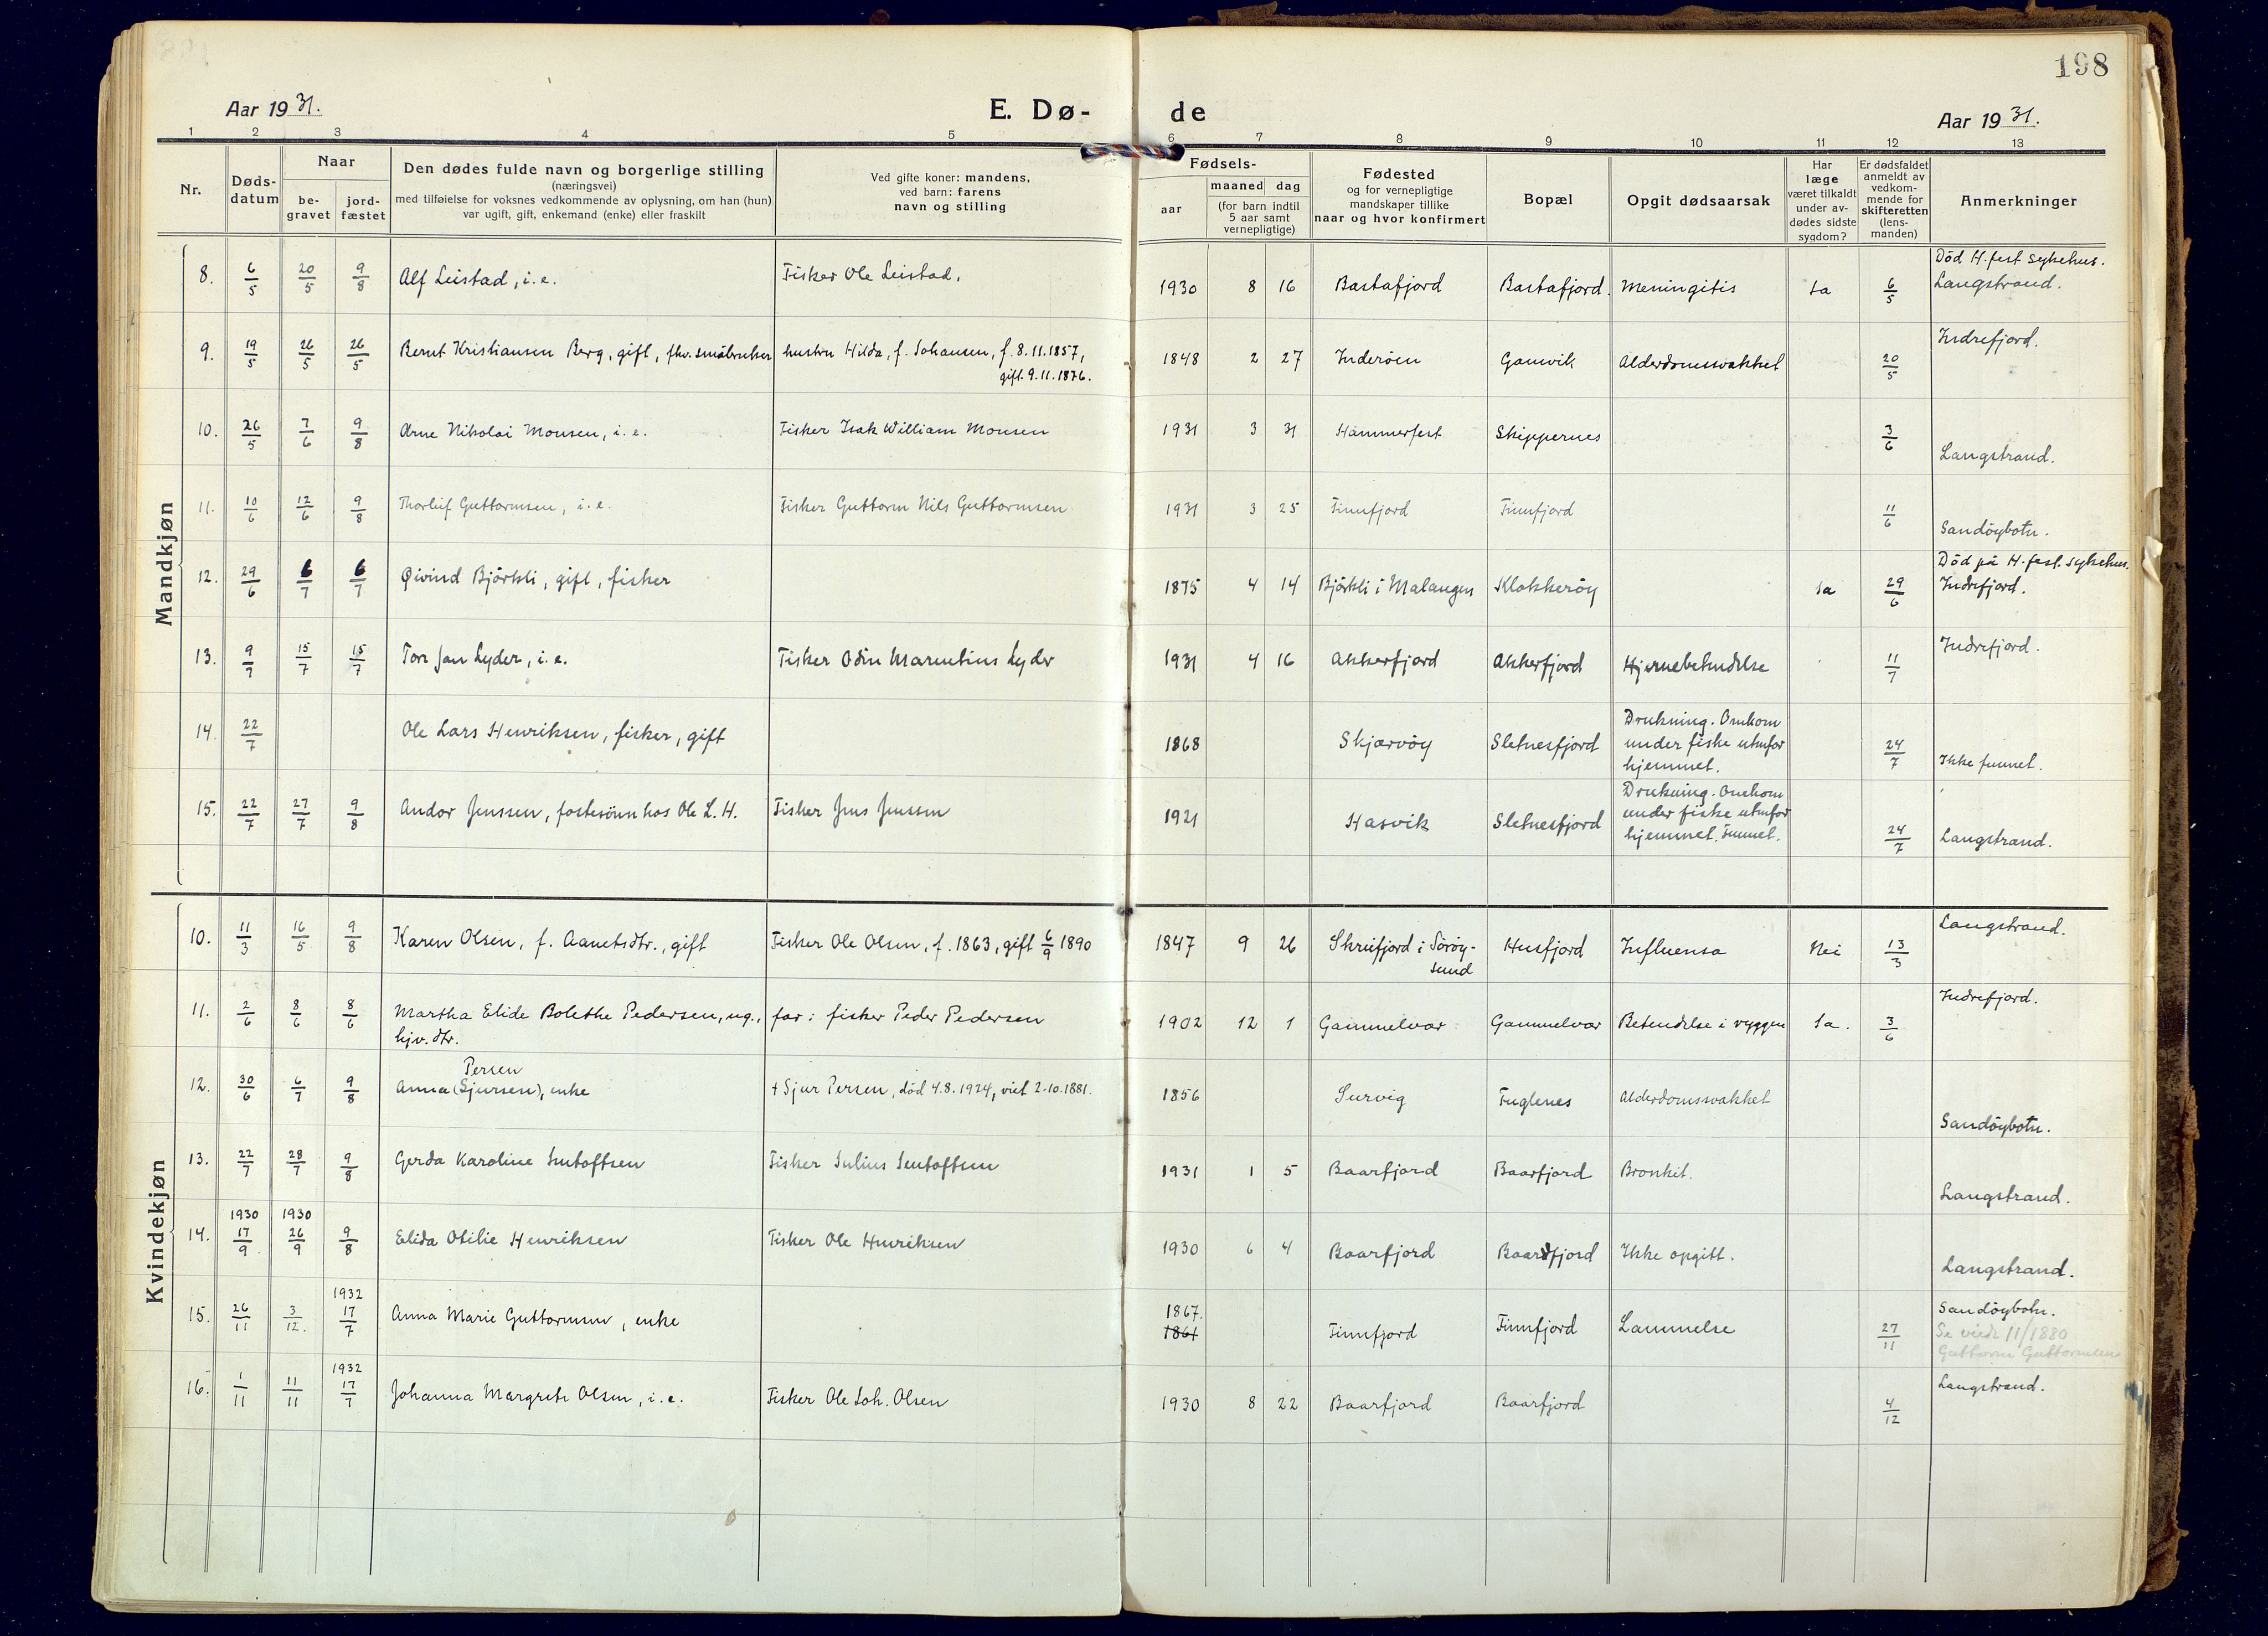 198
Aar 1931.
E. Dø-
de
Aar 1931.
1 2 3 4 5 6 7 8 9 10 11 12 13
Nr.
Døds-
datum
Naar
be-
gravet
jord-
fæstet
Den dødes fulde navn og borgerlige stilling
(næringsvei)
med tilføielse for voksnes vedkommende av oplysning, om han (hun)
var ugift, gift, enkemand (enke) eller fraskilt
Ved gifte koner: mandens,
ved barn: farens
navn og stilling
Fødsels-
aar
maaned
dag
(for barn indtil
5 aar samt
vernepligtige)
Fødested
og for vernepligtige
mandskaper tillike
naar og hvor konfirmert
Bopæl
Opgit dødsaarsak
Har
læge
været tilkaldt
under av-
dødes sidste
sygdom?
Er dødsfaldet
anmeldt av
vedkom-
mende for
skifteretten
(lens-
manden)
Anmerkninger
Mandkjøn
8. 6/5 20/5 9/8 Alf Leistad, i.e. Fisker Ole Leistad. 1930 8 16 Bastafjord Bastafjord. Meningitis Ja 6/5 Död H.fest sykehus.
Langstrand.
9. 19/5 26/5 26/5 Bernt Kristiansen Berg, gift, fhv. småbruker hustru Hilda, f. Johansen, f. 8.11.1857, 1848 2 27 Inderöen Gamvik Alderdomssvakhet 20/5 Indrefjord.
gift 9.11.1876.
10. 26/5 7/6 9/8 Arne Nikolai Monsen, i.e. Fisker Isak William Monsen 1931 3 31 Hammerfest Skippernes 3/6 Langstrand.
11. 10/6 12/6 9/8 Thorleif Guttormsen, i.e. Fisker Guttorm Nils Guttormsen 1931 3 25 Finnfjord Finnfjord 11/6 Sandöybotn.
12. 29/6 6/7 6/7 Øivind Björkli, gift, fisker 1875 4 14 Björkli i Malangen Klokkeröy Ja 29/6 Död på H.fest. sykehus.
Indrefjord.
13. 9/7 15/7 15/7 Tor Jan Lyder, i.e. Fisker Odin Marentius Lyder 1931 4 16 Akkerfjord Akkerfjord Hjernebetendelse 11/7 Indrefjord.
14. 22/7 Ole Lars Henriksen, fisker, gift 1868 Skjærvöy Sletnesfjord Drukning. Omkom
under fiske utenfor
hjemmet. 24/7 Ikke funnet.
15. 22/7 27/7 9/8 Andor Jenssen, fostersönn hos Ole L.H. Fisker Jens Jenssen 1921 Hasvik Sletnesfjord Drukning. Omkom
under fiske utenfor
hjemmet. Funnet. 24/7 Langstrand.
Kvindekjøn
10. 11/3 16/5 9/8 Karen Olsen, f. Aanetsdtr., gift Fisker Ole Olsen, f. 1863, gift 6/9 1890 1847 9 26 Skreifjord i Söröy-
sund Husfjord Influensa Nei 13/3 Langstrand.
11. 2/6 8/6 8/6 Martha Elide Bolethe Pedersen, ug., far: fisker Peder Pedersen 1902 12 1 Gammelvær Gammelvær Betendelse i ryggen Ja. 3/6 Indrefjord.
hjv. dtr.
Persen
12. 30/6 6/7 9/8 Anna (Sjursen), enke + Sjur Persen, död 4.8.1924, viet 2.10.1881. 1856 Survig Fuglenes Alderdomssvakhet Sandöybotn.
13. 22/7 28/7 9/8 Gerda Karoline Sentoftsen Fisker Julius Sentoftsen 1931 1 5 Baarfjord Baarfjord Bronkit. Langstrand.
1930 1930
14. 17/9 26/9 9/8 Elida Otilie Henriksen Fisker Ole Henriksen 1930 6 4 Baarfjord Baarfjord Ikke opgitt. Langstrand.
1932
15. 26/11 3/12. 17/7 Anna Marie Guttormsen, enke 1867. 1861 Finnfjord Finnfjord Lammelse 27/11 Sandöybotn.
Se viede 11/1880
Guttorm Guttormsen
1932
16. 1/11 11/11 17/7 Johanna Margrete Olsen, i.e. Fisker Ole Joh. Olsen 1930 8 22 Baarfjord Baarfjord 4/12 Langstrand.